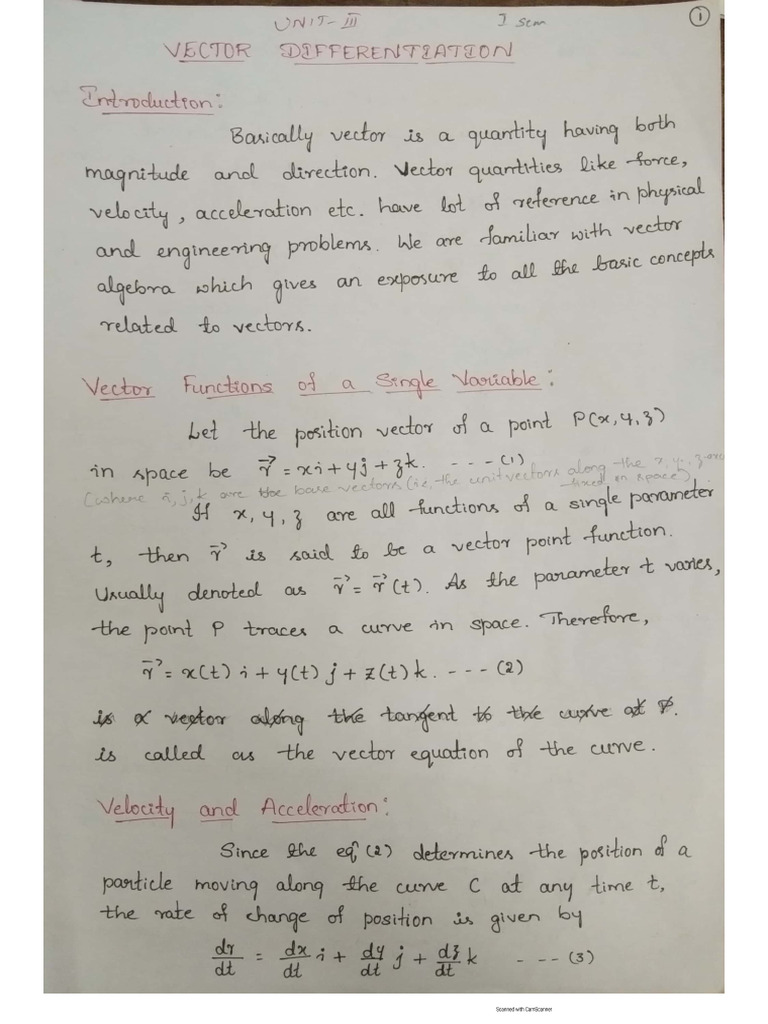 UNIT-III I Sem 1
VECTOR DIFFERENTIATION
Introduction:
Basically vector is a quantity having both
magnitude and direction. Vector quantities like force,
velocity, acceleration etc. have lot of reference in physical
and engineering problems. We are familiar with vector
algebra which gives an exposure to all the basic concepts
related to vectors.
Vector Functions of a Single Variable:
Let the position vector of a point P(x,y,z)
in space be r⃗ = xi + yj + zk. - - - (1)
(where i, j, k are the base vectors (ie, the unit vectors along the x, y, z-axes
fixed in space)
If x, y, z are all functions of a single parameter
t, then r⃗ is said to be a vector point function.
Usually denoted as r⃗ = r⃗(t). As the parameter t varies,
the point P traces a curve in space. Therefore,
r⃗ = x(t) i + y(t) j + z(t) k. - - - (2)
is a vector along the tangent to the curve at P.
is called as the vector equation of the curve.
Velocity and Acceleration:
Since the eqn (2) determines the position of a
particle moving along the curve C at any time t,
the rate of change of position is given by
dr/dt = dx/dt i + dy/dt j + dz/dt k - - - (3)
Scanned with CamScanner